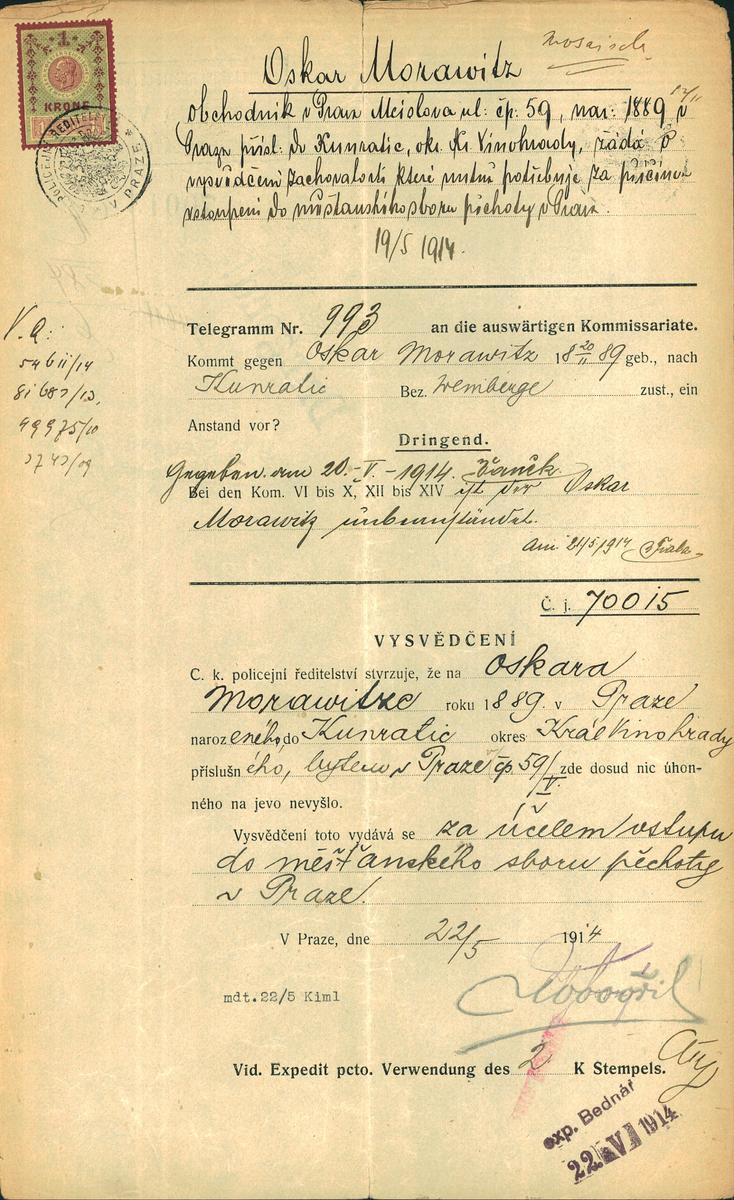 1
KRONE
POLICEJNÍ ŘEDITELS
V PRAZE *
mosaisch
Oskar Morawitz
obchodník v Praze Meislova ul: čp: 59, nar: 1889 20/11 v
Praze přísl. do Kunratic, okr. Kr. Vinohrady, žádá o
vysvědčení zachovalosti které nutně potřebuje za příčinou
vstoupení do měšťanského sboru pěchoty v Praze.
19/5 1914.
V. a:
54611/14
81687/13,
49975/10
3743/09
Telegramm Nr. 993 an die auswärtigen Kommissariate.
Kommt gegen Oskar Morawitz 18 20/11 89 geb., nach
Kunratic Bez. Weinberge zust., ein
Anstand vor?
Dringend.
Gegeben am 20.-V.-1914.
Bei den Kom. VI bis X, XII bis XIV ist der Oskar
Morawitz unbeanständet.
Am 21/5 1914
Č. j. 70015
VYSVĚDČENÍ
C. k. policejní ředitelství stvrzuje, že na Oskara
Morawitze roku 1889. v Praze
narozeného, do Kunratic okres Král Vinohrady
příslušného, bytem v Praze čp 59/V. zde dosud nic úhon-
ného na jevo nevyšlo.
Vysvědčení toto vydává se za účelem vstupu
do měšťanského sboru pěchoty
v Praze.
V Praze, dne 22/5 1914
mdt.22/5 Kiml
Vid. Expedit pcto. Verwendung des 2 K Stempels.
exp. Bednář
22. VI 1914